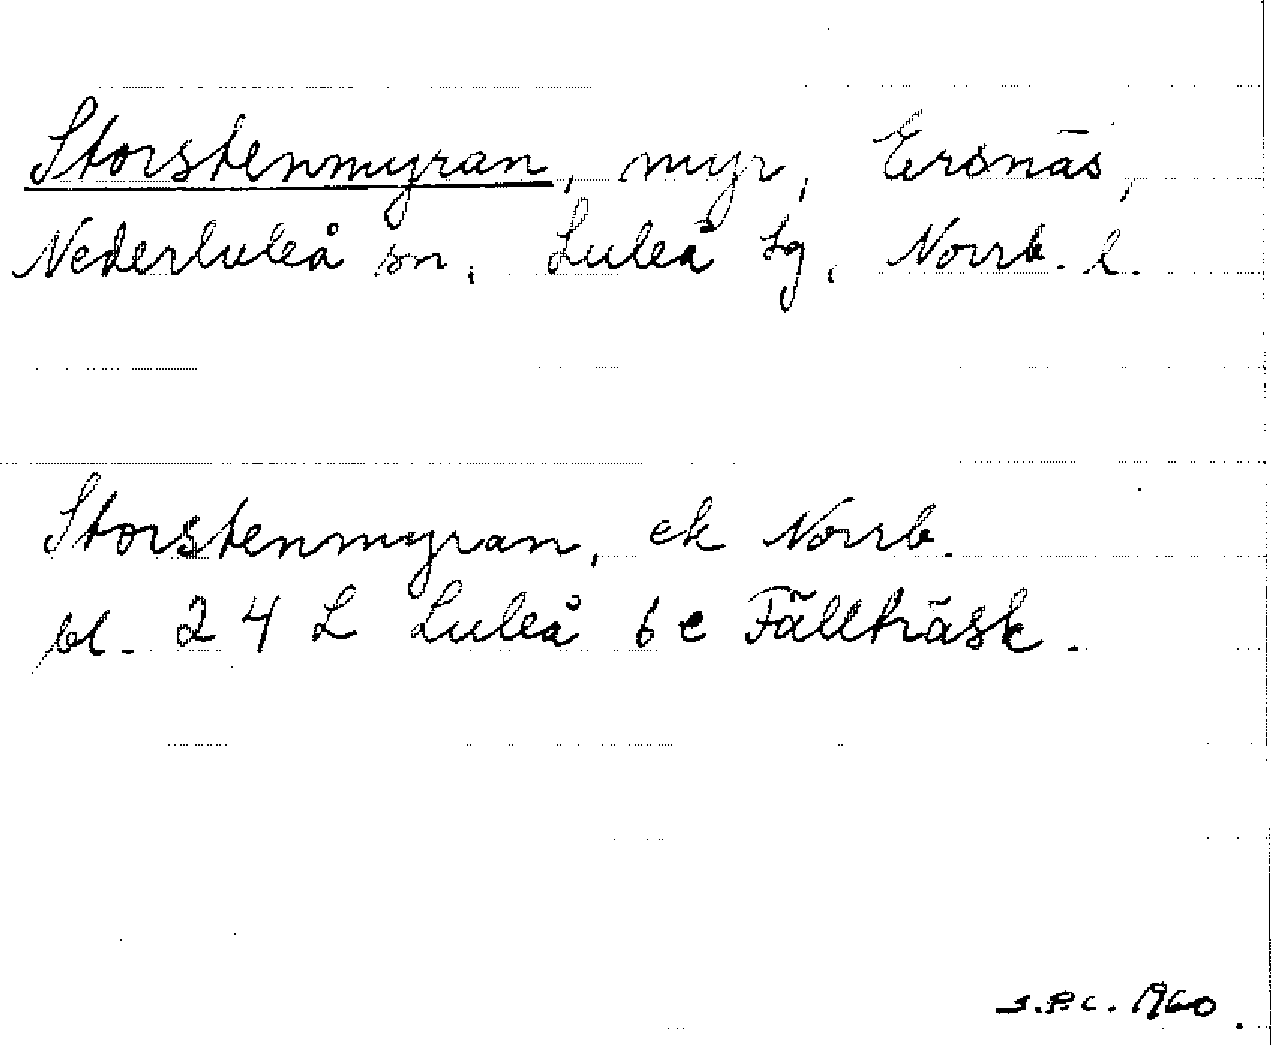 Storstenmyran, myr, Ersnäs,
Nederluleå sn, Luleå lg, Norrb. l.
Storstenmyran, ek Norrb.
bl. 24 L Luleå 6c Fällträsk.
S.P.C. 1960.